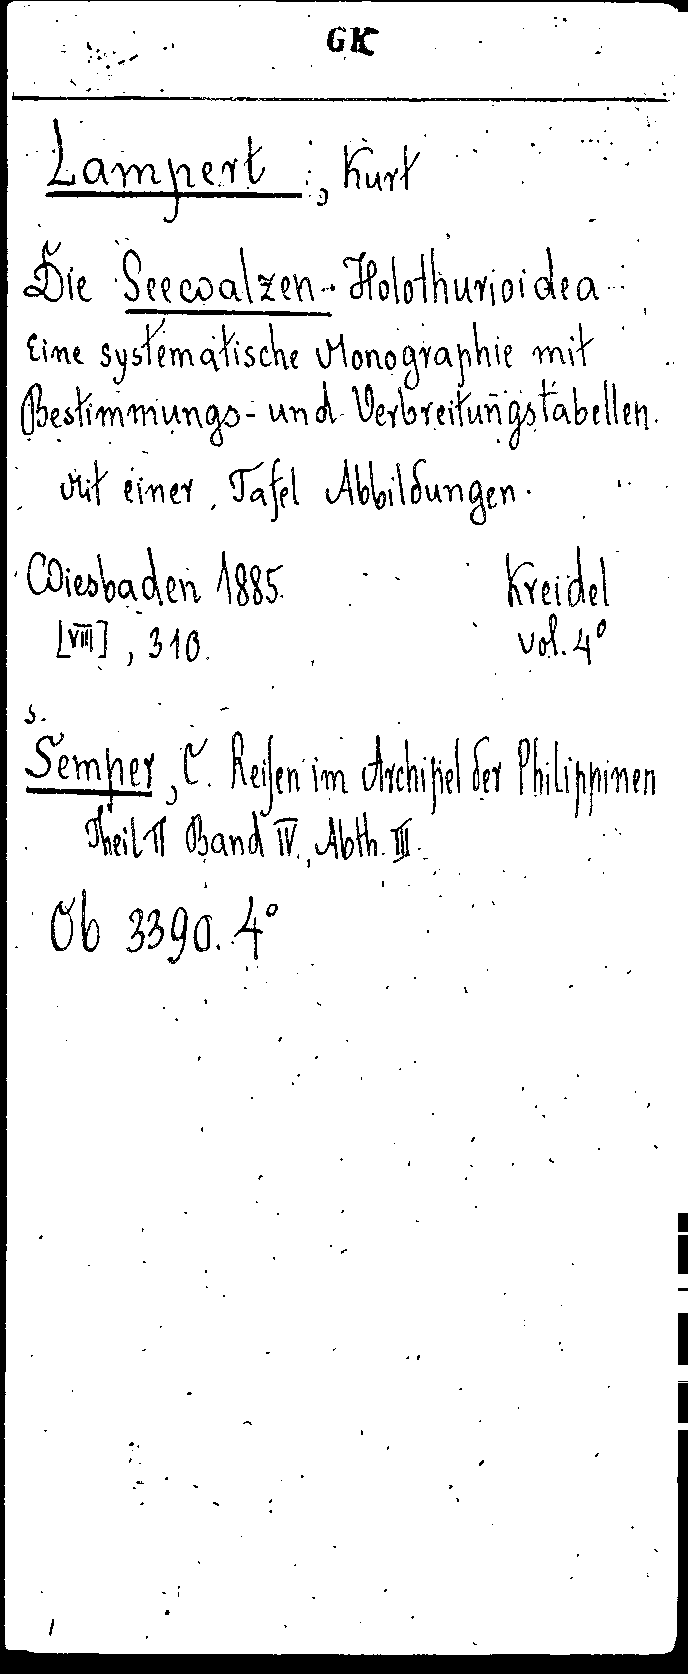 GK
Lampert, Kurt
Die Seewalzen. Holothurioidea
Eine systematische Monographie mit
Bestimmungs- und Verbreitungstabellen.
Mit einer Tafel Abbildungen.
Wiesbaden 1885. Kreidel
[VIII], 310. vol. 4°
s.
Semper, C. Reisen im Archipiel der Philippinen
Theil II Band IV., Abth. III.
Ob 3390. 4°